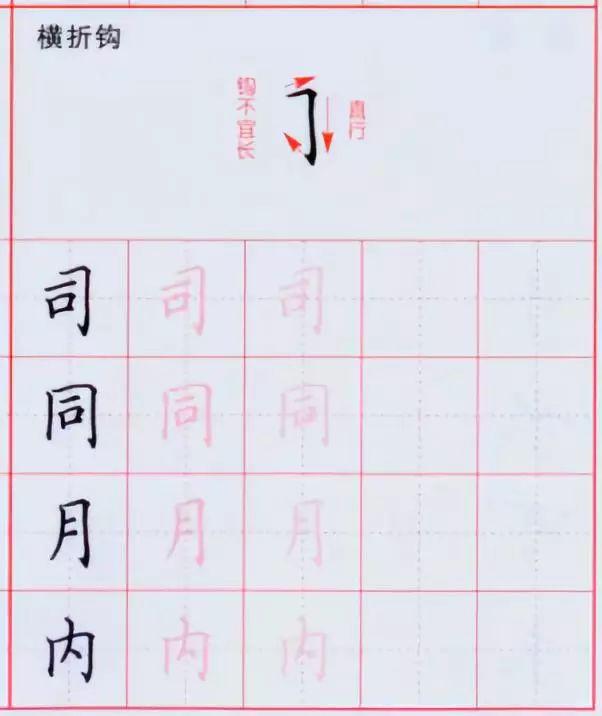 横折钩
钩不宜长
直行
司 司 司
同 同 同
月 月 月
内 内 内